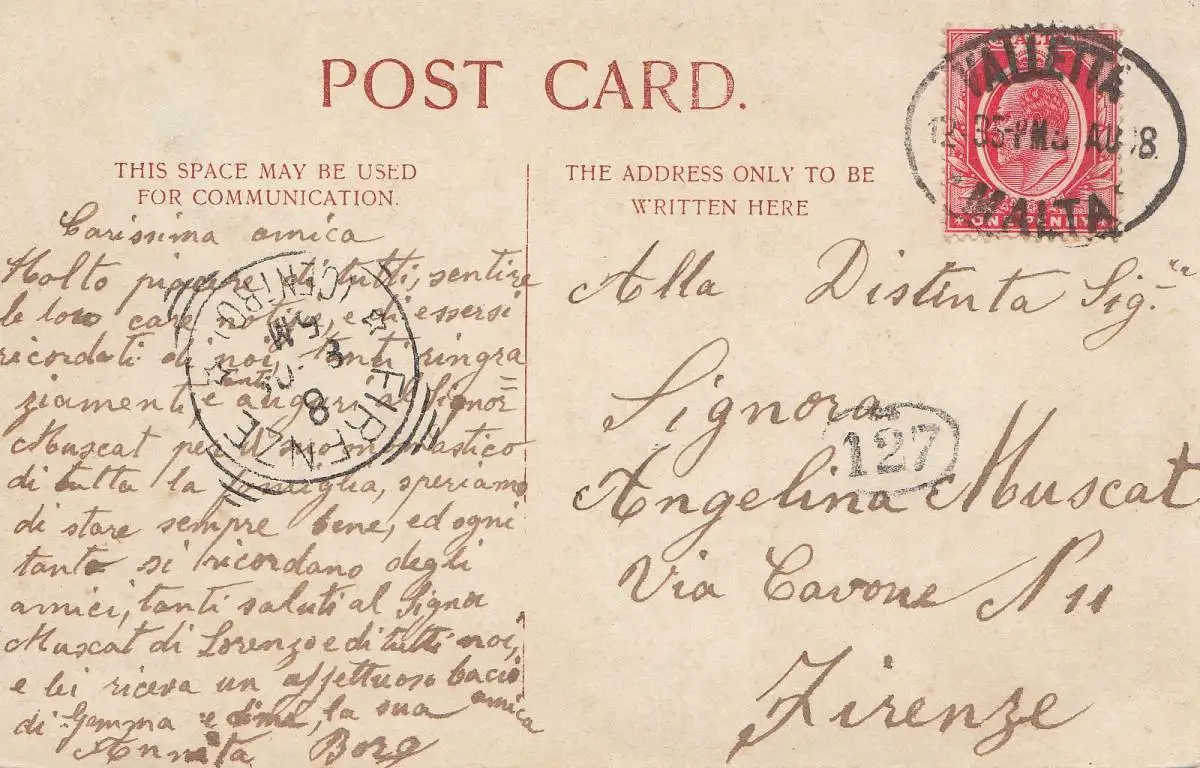 POST CARD.
THIS SPACE MAY BE USED
FOR COMMUNICATION.
Carissima amica
Molto piacere di tutti, sentire
le loro care notizie, e di essersi
ricordati di noi, tanti ringra
ziamenti e auguri al Signor
Muscat per l'onomastico
di tutta la famiglia, speriamo
di stare sempre bene, ed ogni
tanto si ricordano degli
amici, tanti saluti al Signor
Muscat di Lorenzo e di tutti noi,
e lei riceva un affettuoso bacio
di Gemma e, la sua amica
Annita Borg
THE ADDRESS ONLY TO BE
WRITTEN HERE
Alla Distinta Sig.ra
Signora
Angelina Muscat
Via Cavour N 11
Firenze
VALLETTA
MALTA
ONE PENNY
FIRENZE
(CENTRO)
8
127